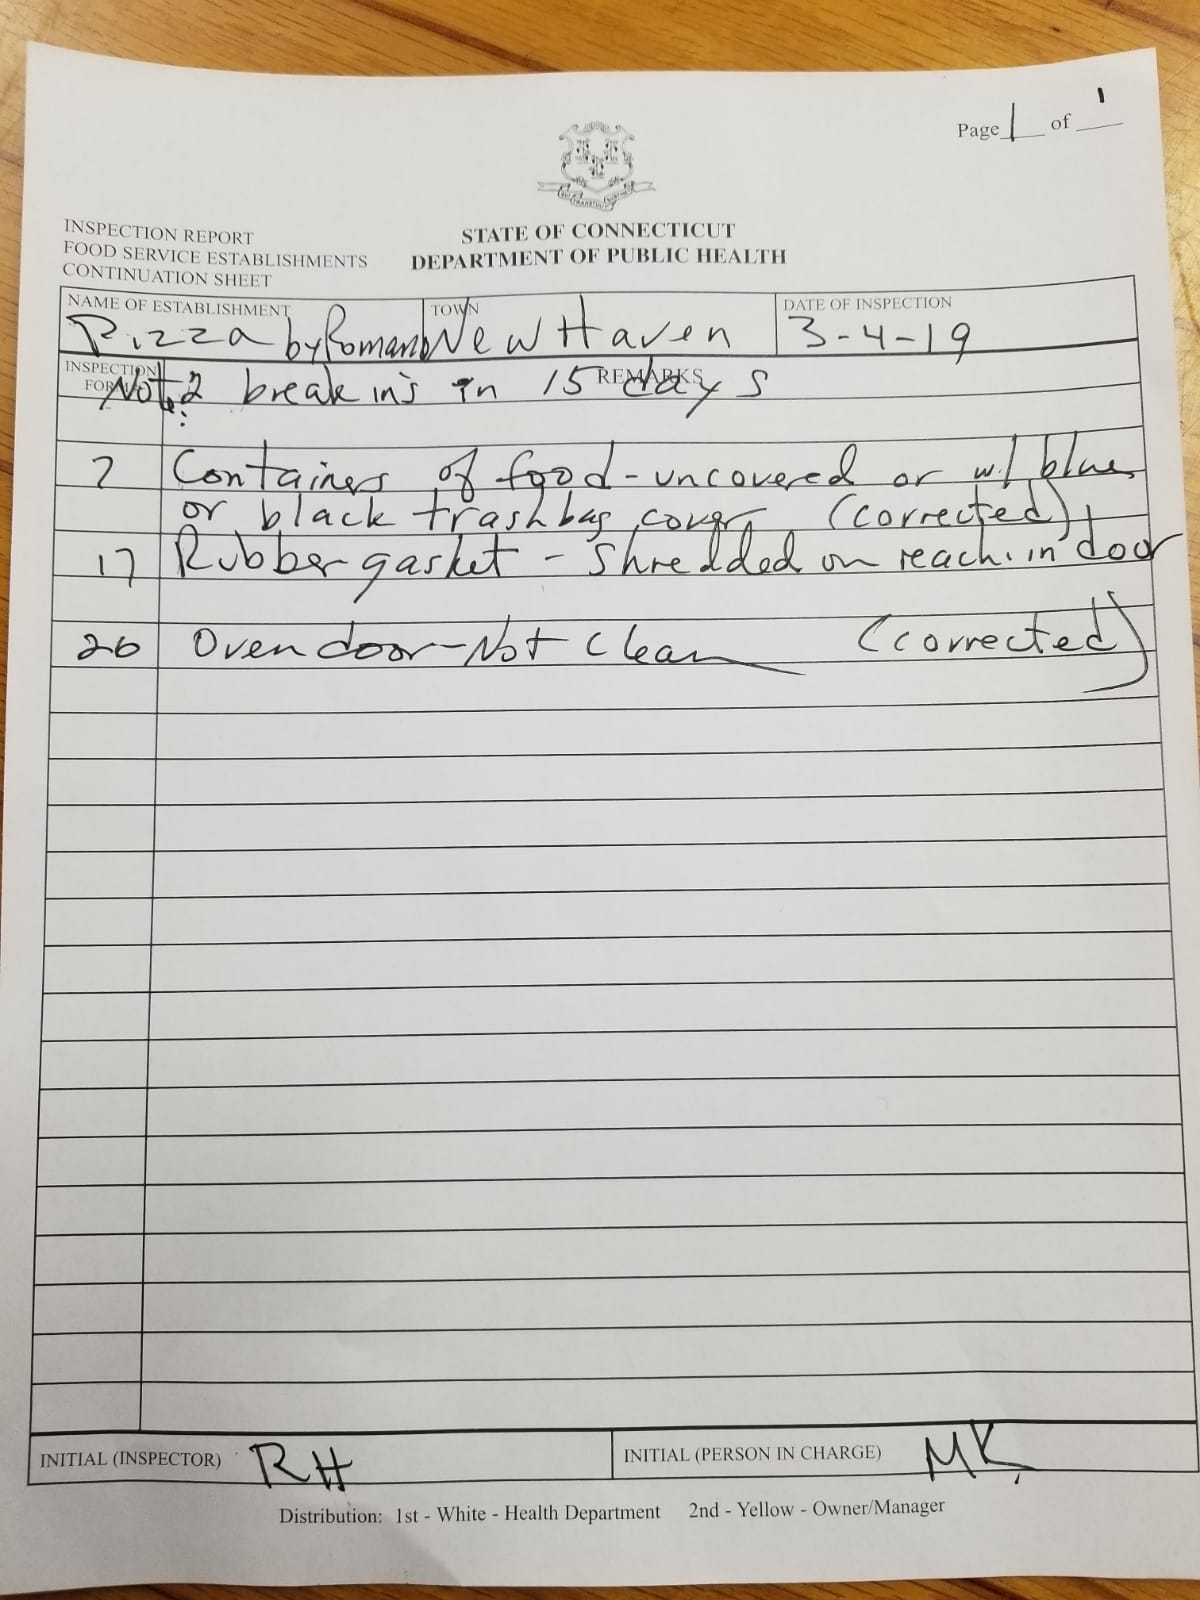 Page 1 of 1
INSPECTION REPORT
FOOD SERVICE ESTABLISHMENTS
CONTINUATION SHEET
STATE OF CONNECTICUT
DEPARTMENT OF PUBLIC HEALTH
NAME OF ESTABLISHMENT
Pizza by Romano
TOWN
New Haven
DATE OF INSPECTION
3-4-19
INSPECTION
REMARKS
Note: 2 break in's in 15 days
Containers of food - uncovered or w/ blue
or black trash bag cover (corrected)
17 Rubber gasket - shredded on reach-in door
20 Oven door - Not clean (corrected)
INITIAL (INSPECTOR) RH
INITIAL (PERSON IN CHARGE) MK
Distribution: 1st - White - Health Department 2nd - Yellow - Owner/Manager